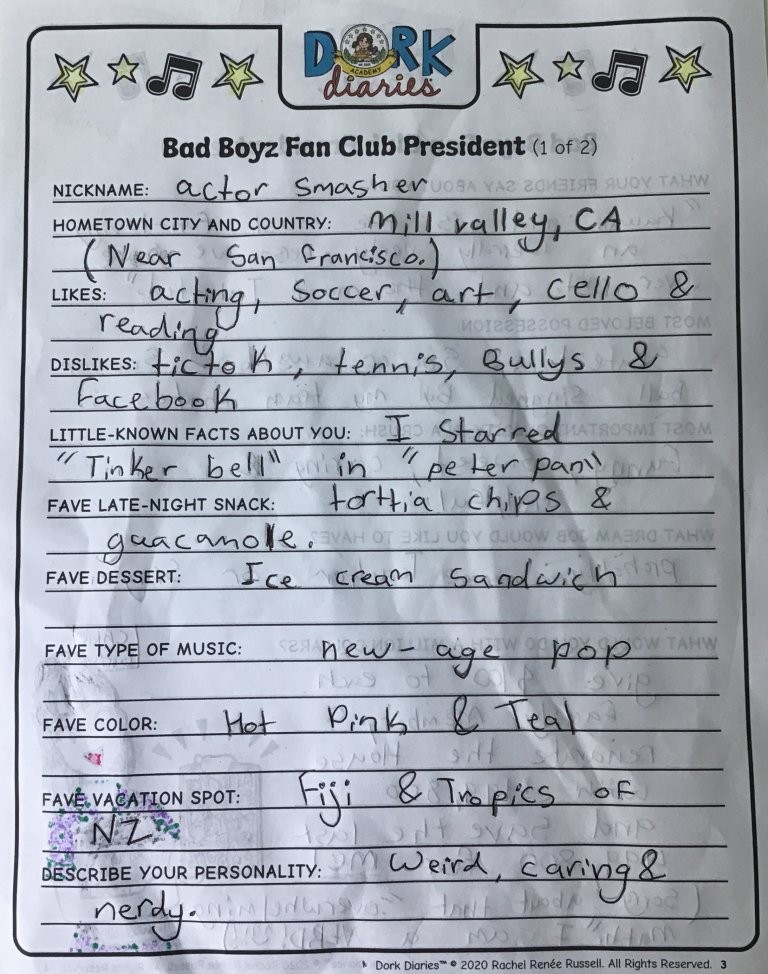 DORK
ACADEMY
diaries
Bad Boyz Fan Club President (1 of 2)
NICKNAME: actor smasher
HOMETOWN CITY AND COUNTRY: Mill valley, CA
(Near San francisco.)
LIKES: acting, Soccer, art, cello &
reading
DISLIKES: tictok, tennis, Bullys &
Facebook
LITTLE-KNOWN FACTS ABOUT YOU: I Starred
"Tinker bell" in "peter pan"
FAVE LATE-NIGHT SNACK: torttia chips &
guacanole.
FAVE DESSERT: Ice cream Sandwich
FAVE TYPE OF MUSIC: new-age pop
FAVE COLOR: Hot Pink & Teal
FAVE VACATION SPOT: Fiji & Tropics of
NZ
DESCRIBE YOUR PERSONALITY: Weird, caring &
nerdy.
Dork Diaries™ © 2020 Rachel Renée Russell. All Rights Reserved. 3